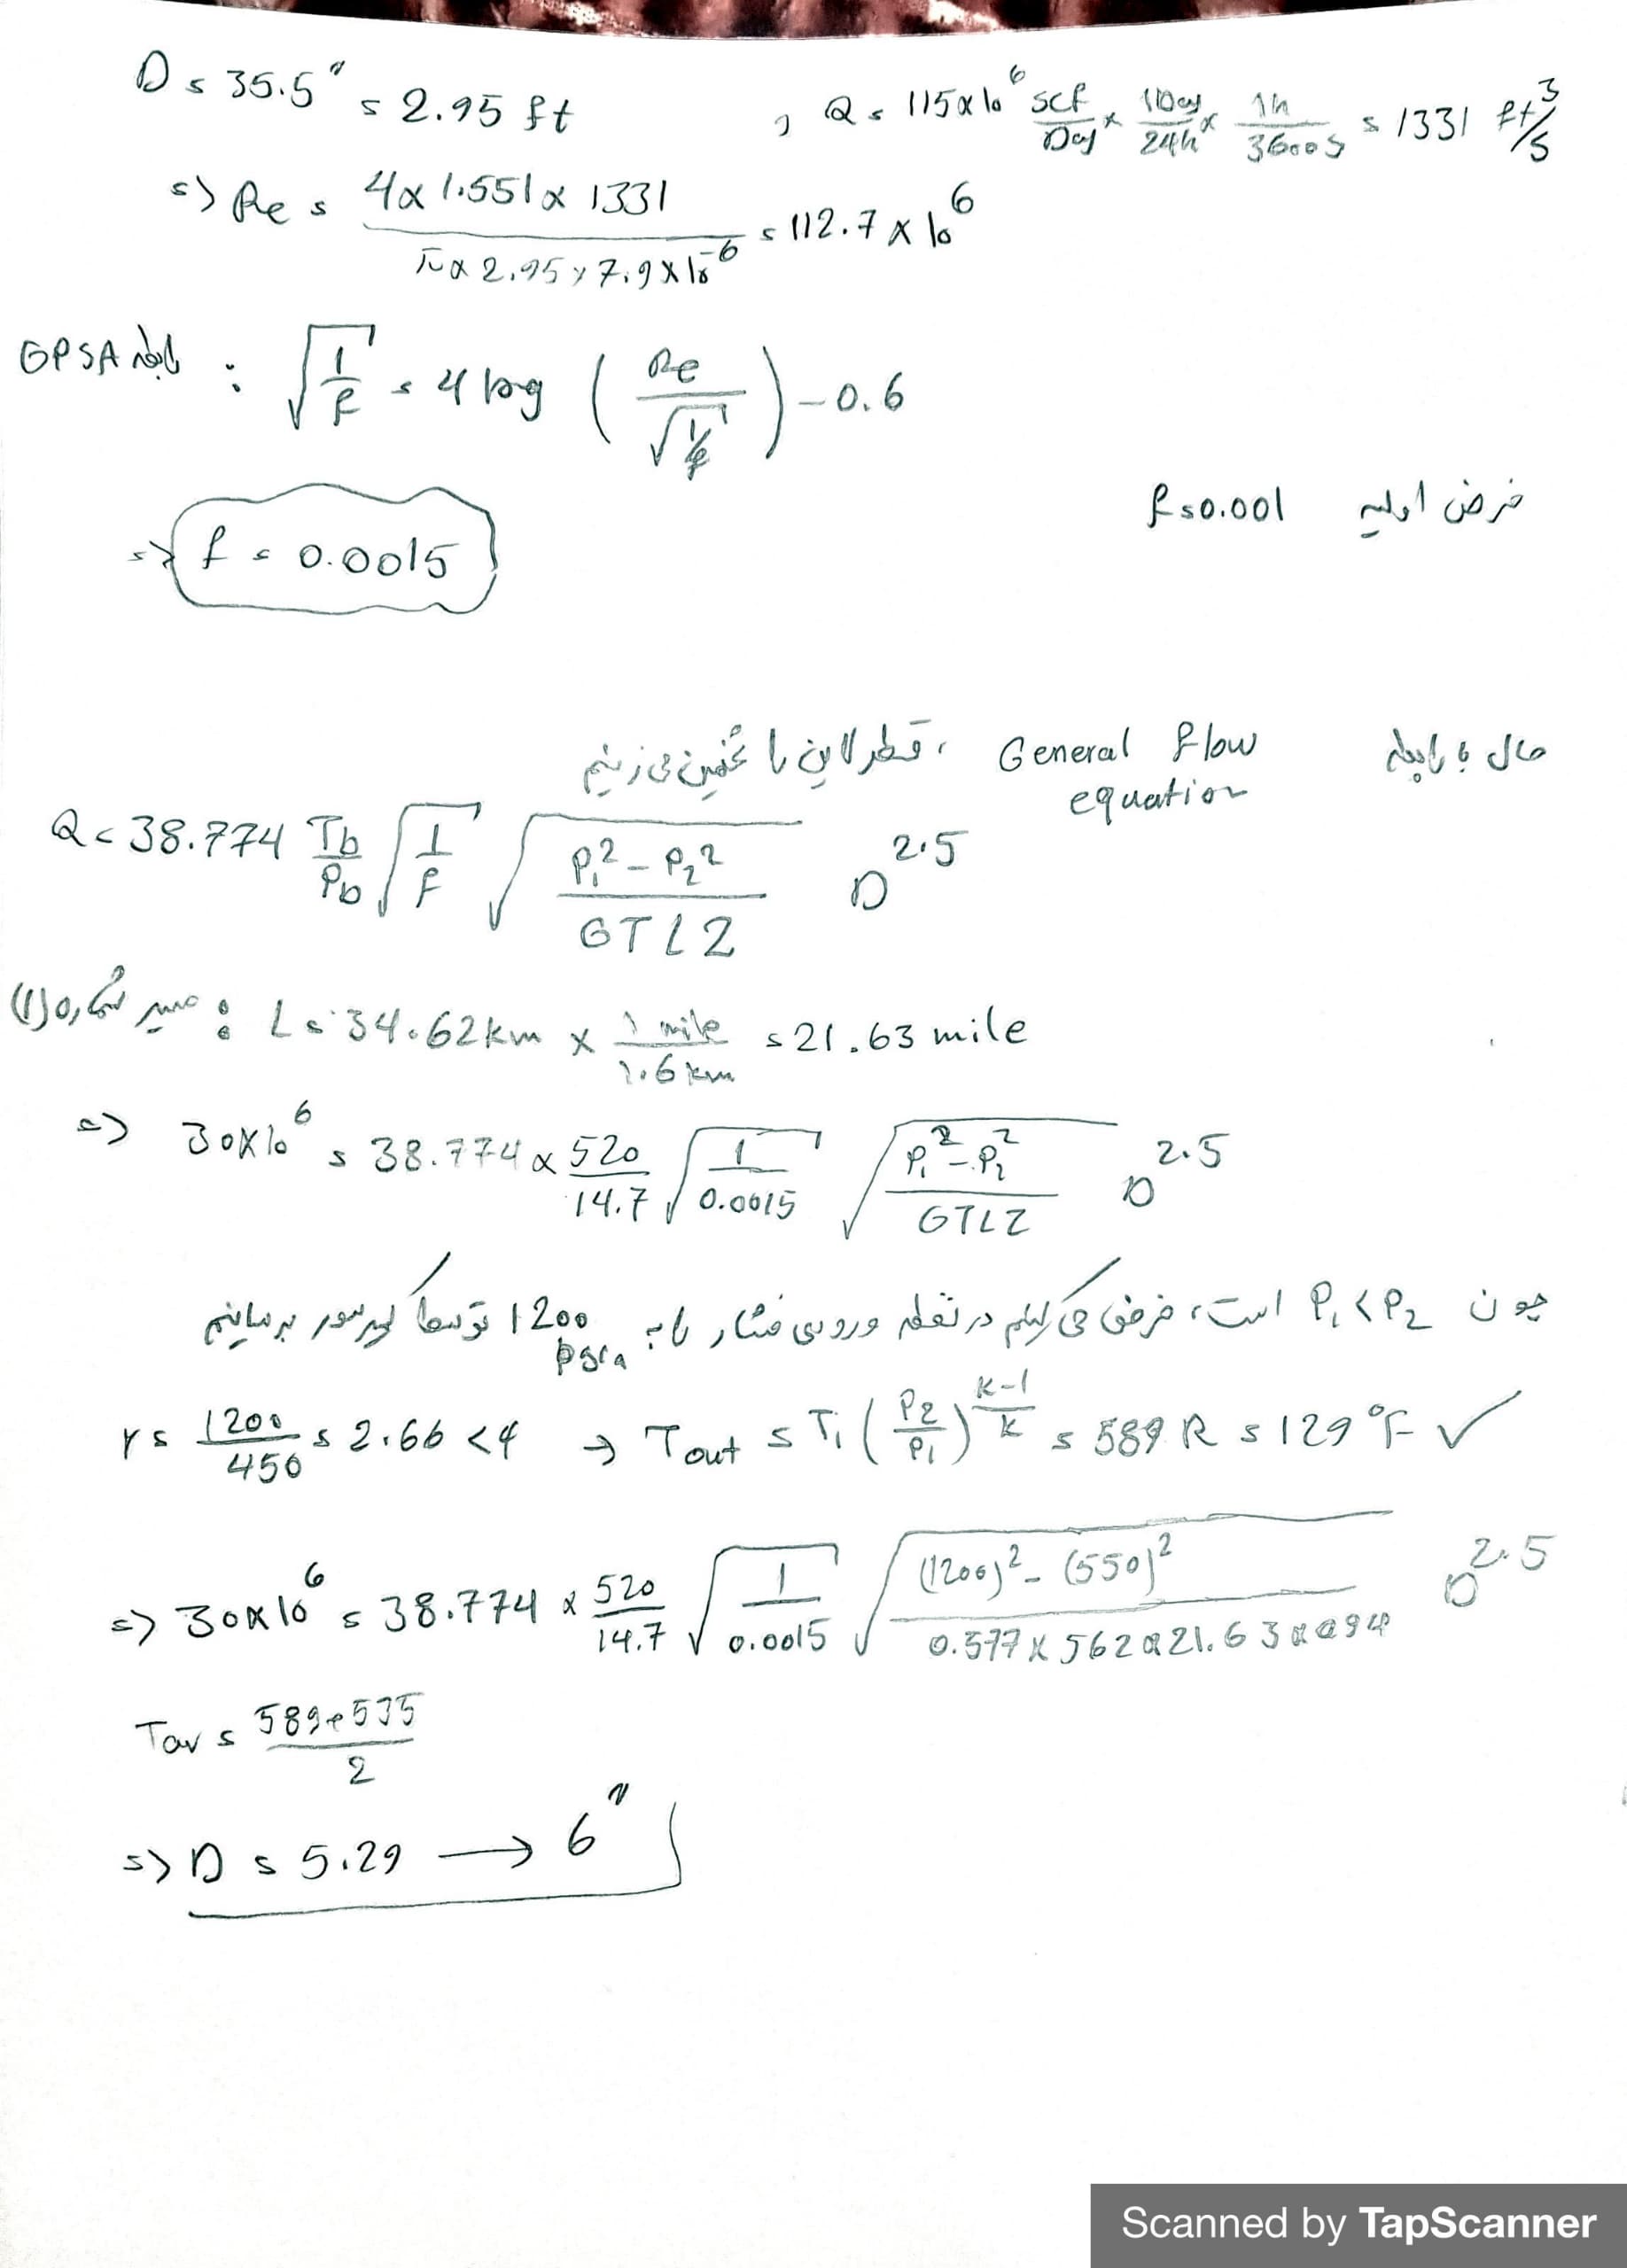 D = 35.5" = 2.95 ft , Q = 115×10^6 scf/Day × 1Day/24h × 1h/3600s = 1331 ft^3/s
=> Re = (4 × 1.551 × 1331)/(π × 2.95 × 7.9×10^-6) = 112.7 × 10^6
رابطه GPSA : √(1/f) = 4 log (Re/√(1/f)) - 0.6
فرض اولیه f = 0.001
=> f = 0.0015
حال با رابطه General flow equation ، قطر لاین را تخمین می زنیم
Q = 38.774 Tb/Pb √(1/f) √((P1^2 - P2^2)/(GTLZ)) D^2.5
مسیر شماره (1) : L = 34.62 km × 1 mile/1.6 km = 21.63 mile
=> 30×10^6 = 38.774 × 520/14.7 √(1/0.0015) √((P1^2 - P2^2)/(GTLZ)) D^2.5
چون P1 < P2 است، فرض می کنیم در نقطه ورودی فشار را به 1200 psia توسط کمپرسور برسانیم
r = 1200/450 = 2.66 < 4 → Tout = Ti (P2/P1)^((k-1)/k) = 589 R = 129 °F ✓
=> 30×10^6 = 38.774 × 520/14.7 √(1/0.0015) √(((1200)^2 - (550)^2)/(0.577 × 562 × 21.63 × 0.94)) D^2.5
Tav = (589+535)/2
=> D = 5.29 → 6"
Scanned by TapScanner